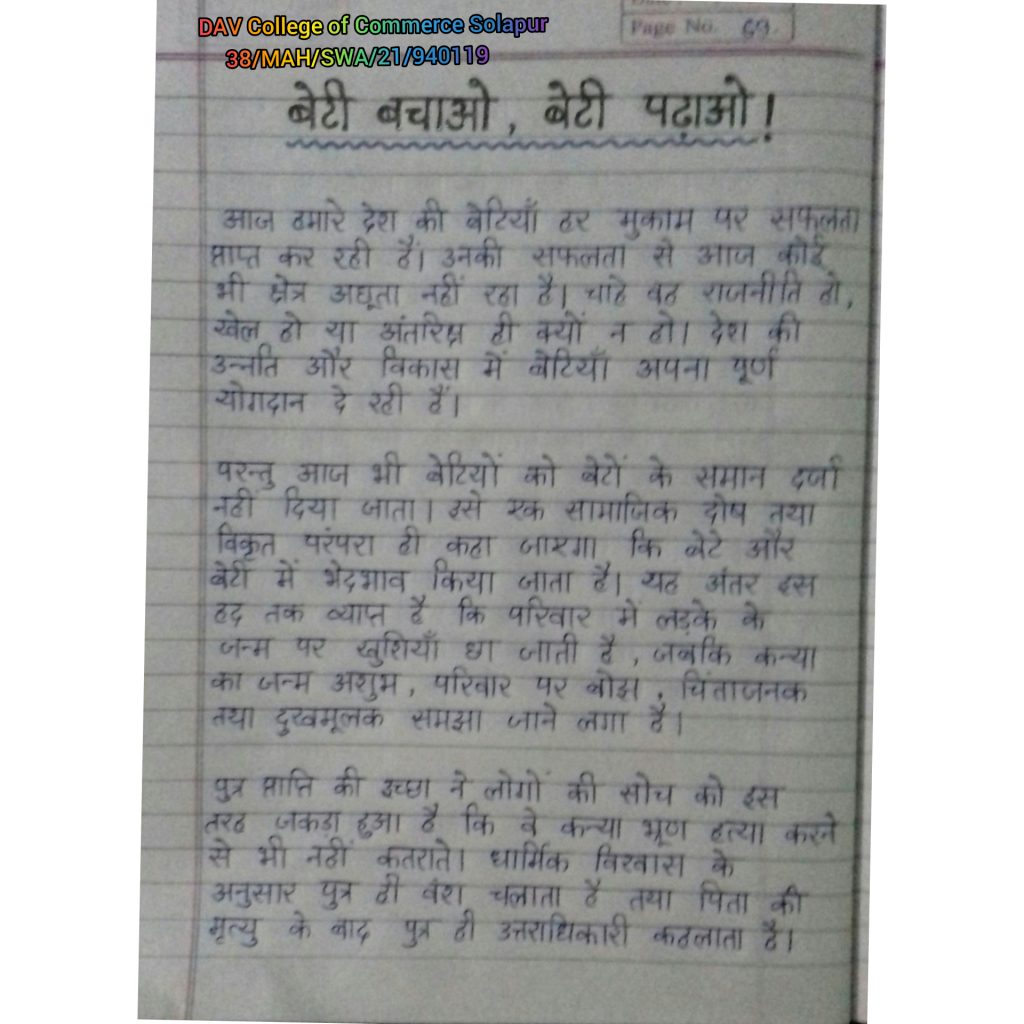 DAV College of Commerce Solapur
38/MAH/SWA/21/940119
Page No. 69.
बेटी बचाओ, बेटी पढ़ाओ!
आज हमारे देश की बेटियाँ हर मुकाम पर सफलता
प्राप्त कर रही हैं। उनकी सफलता से आज कोई
भी क्षेत्र अछूता नहीं रहा है। चाहे वह राजनीति हो,
खेल हो या अंतरिक्ष ही क्यों न हो। देश की
उन्नति और विकास में बेटियाँ अपना पूर्ण
योगदान दे रही हैं।
परन्तु आज भी बेटियों को बेटों के समान दर्जा
नहीं दिया जाता। इसे एक सामाजिक दोष तथा
विकृत परंपरा ही कहा जाएगा कि बेटे और
बेटी में भेदभाव किया जाता है। यह अंतर इस
हद तक व्याप्त है कि परिवार में लड़के के
जन्म पर खुशियाँ छा जाती है, जबकि कन्या
का जन्म अशुभ, परिवार पर बोझ, चिंताजनक
तथा दुखमूलक समझा जाने लगा है।
पुत्र प्राप्ति की इच्छा ने लोगों की सोच को इस
तरह जकड़ा हुआ है कि वे कन्या भ्रूण हत्या करने
से भी नहीं कतराते। धार्मिक विश्वास के
अनुसार पुत्र ही वंश चलाता है तथा पिता की
मृत्यु के बाद पुत्र ही उत्तराधिकारी कहलाता है।